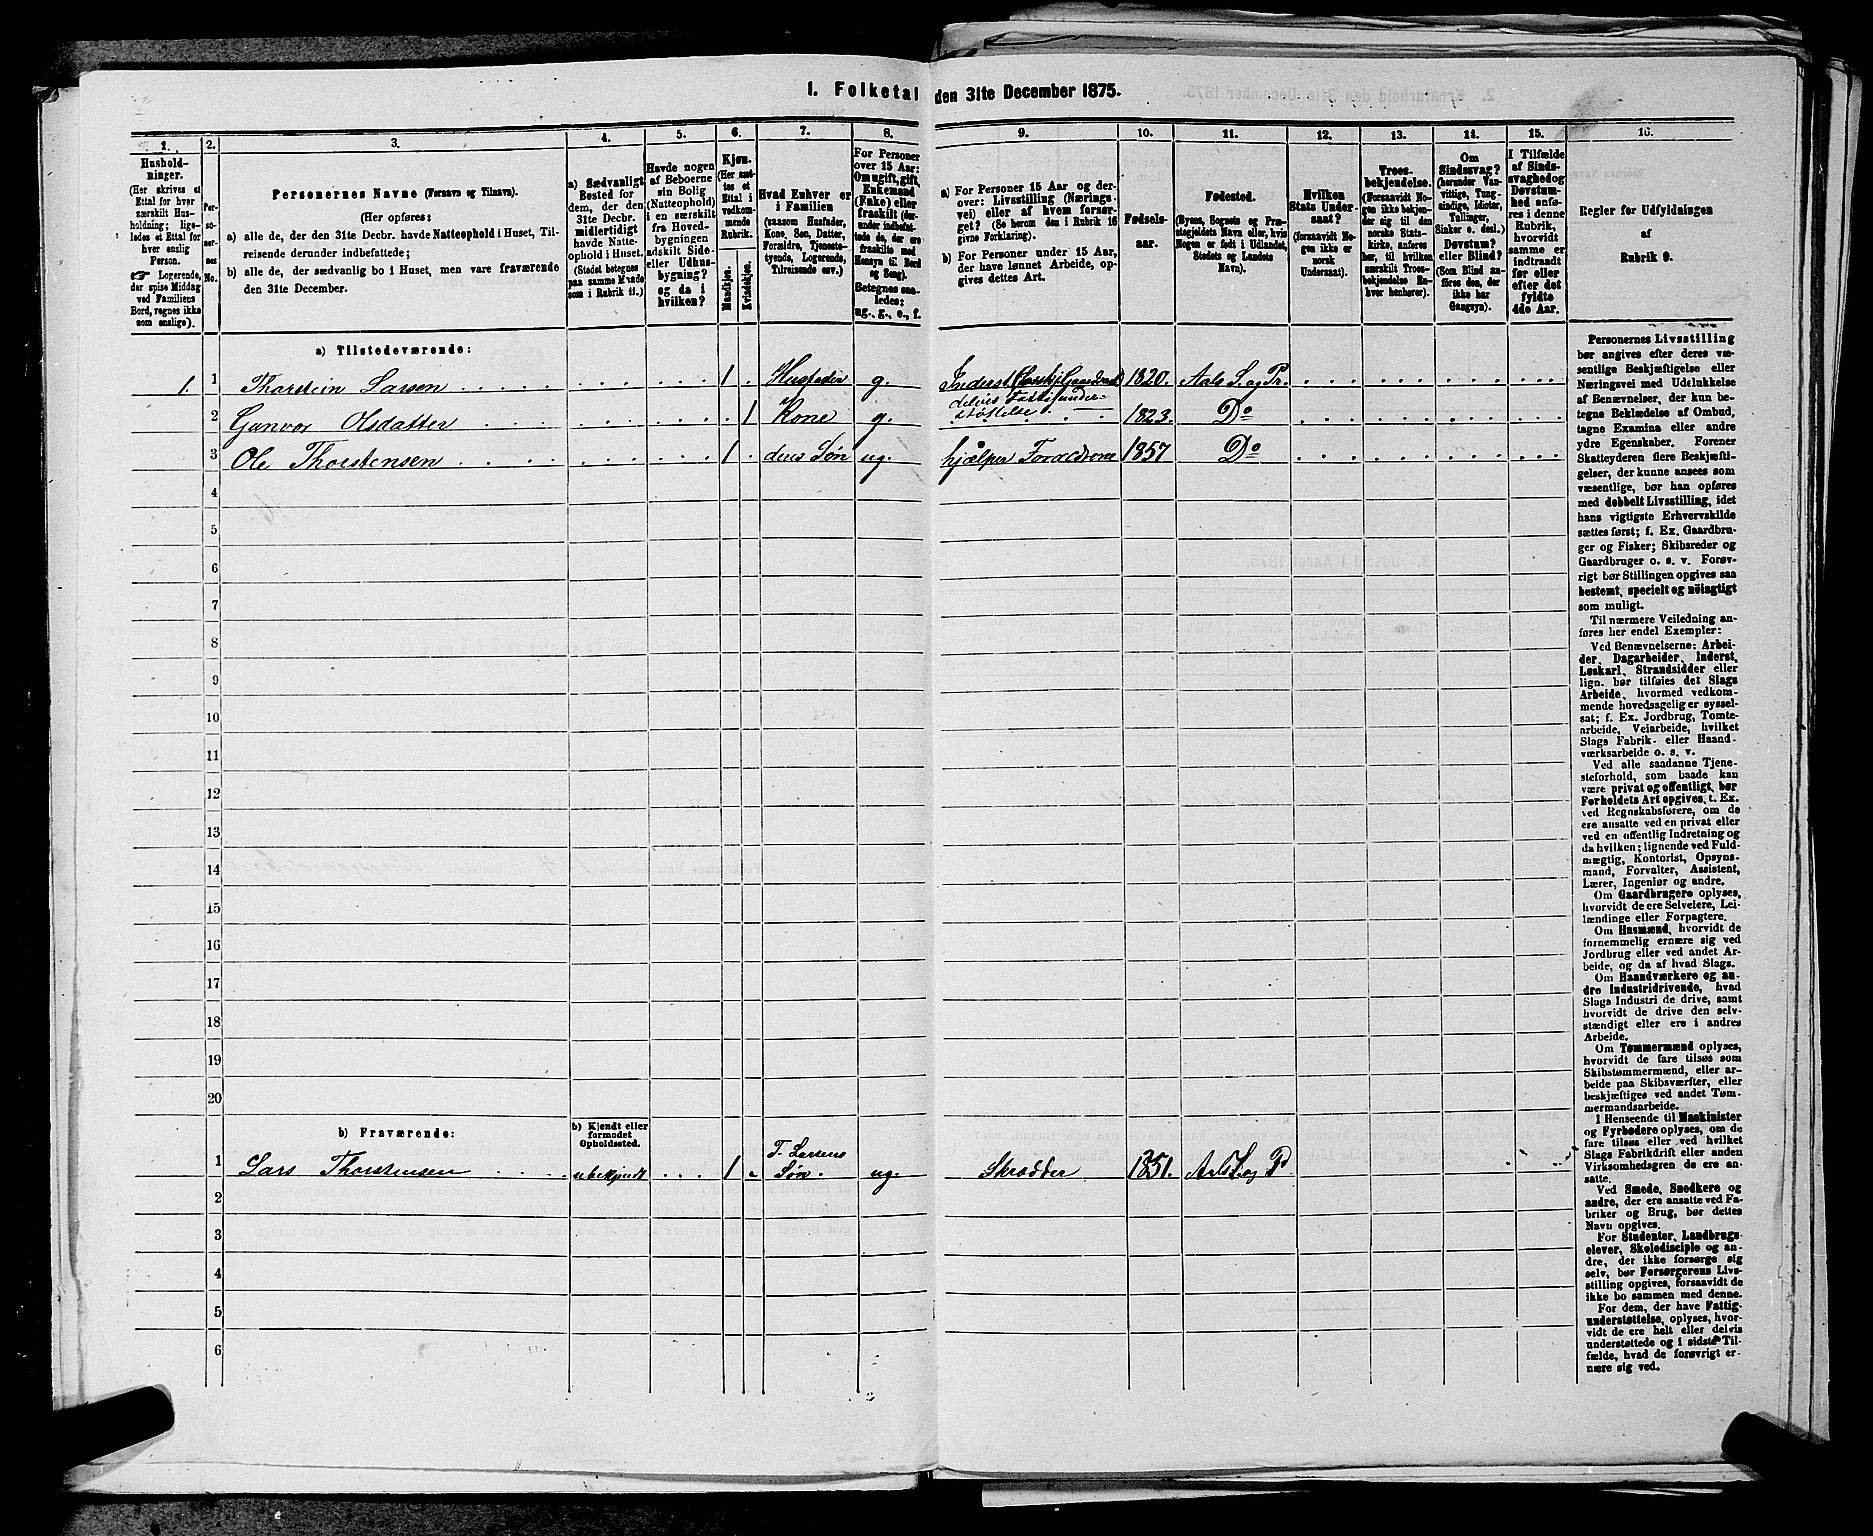 1. Folketal den 31te December 1875.
1.
2.
3.
4.
5.
6.
7.
8.
9.
10.
11.
12.
13.
14.
15.
16.
Hushold-
ninger.
(Her skrives et
Ettal for hver
særskilt Hus-
holdning; lige-
ledes et Ettal for
hver enslig
Person.
☞ Logerende,
der spise Middag
ved Familiens
Bord, regnes ikke
som enslige).
Per-
so-
ner-
nes
No.
Personernes Navne (Fornavn og Tilnavn).
(Her opføres:
a) alle de, der den 31te Decbr. havde Natteophold i Huset, Til-
reisende derunder indbefattede;
b) alle de, der sædvanlig bo i Huset, men vare fraværende
den 31te December.
a) Sædvanligt
Bosted for
dem, der den
31te Decbr.
midlertidigt
havde Natte-
ophold i Huset.
(Stedet betegnes
paa samme Maade
som i Rubrik 11.)
Havde nogen
af Beboerne
sin Bolig
(Natteophold)
i en særskilt
fra Hoved-
bygningen
adskilt Side-
eller Udhus-
bygning?
og da i
hvilken?
Kjøn.
(Her sæt-
tes et
Ettal i
vedkom-
mende
Rubrik.
Mandkjøn.
Kvindekjøn.
Hvad Enhver er
i Familien
(saasom Husfader,
Kone, Søn, Datter,
Forældre, Tjeneste-
tyende, Logerende,
Tilreisende osv.)
For Personer
over 15 Aar:
Om ugift, gift,
Enkemand
(Enke) eller
fraskilt (der-
under indbefat-
tede de, der ere
fraskilte med
Hensyn til Bord
og Seng).
Betegnes saa-
ledes:
ug., g., e., f.
a) For Personer 15 Aar og der-
over: Livsstilling (Nærings-
vei) eller af hvem forsør-
get? (Se herom den i Rubrik 16
givne Forklaring).
b) For Personer under 15 Aar,
der have lønnet Arbeide, op-
gives dettes Art.
Fødsels-
aar.
Fødested.
(Byens, Sognets og Præ-
stegjeldets Navn eller, hvis
Nogen er født i Udlandet,
Stedets og Landets
Navn).
Hvilken
Stats Under-
saat?
(forsaavidt No-
gen ikke er
norsk
Undersaat).
Troes-
bekjendelse.
(Forsaavidt No-
gen ikke bekjen-
der sig til den
norske Stats-
kirke, anføres
her, til hvilken
særskilt Troes-
bekjendelse En-
hver henhører).
Om
Sindssvag?
(herunder Van-
vittige, Tung-
sindige, Idioter,
Tullinger,
Sinker o. desl.)
Døvstum?
eller Blind?
(Som Blind an-
føres den, der
ikke har
Gangsyn).
I Tilfælde
af Sinds-
svaghed og
Døvstum-
hed anfø-
res i denne
Rubrik,
hvorvidt
samme er
indtraadt
før eller
efter det
fyldte
4de Aar.
Regler for Udfyldningen
af
Rubrik 9.
a) Tilstedeværende:
1. 1 Thorstein Larsen Husfader 1 g. Inderst 1820. Aals S. og Pr.
delvis Fattigunder-
støttelse
2 Gunvor Olsdatter 1 Kone g. 1823. Do
3 Ole Thorstensen 1 deres Søn ug. hjælper Forældrene 1857 Do
4
5
6
7
8
9
10
11
12
13
14
15
16
17
18
19
20
b) Fraværende:
b) Kjendt eller
formodet
Opholdssted.
1 Lars Thorstensen ubekjendt 1 T. Larsens
Søn. ug. Skrædder 1851. Aals S. og P
2
3
4
5
6
Personernes Livsstilling
bør angives efter deres væ-
sentlige Beskjæftigelse eller
Næringsvei med Udelukkelse
af Benævnelser, der kun be-
tegne Beklædelse af Ombud,
tagne Examina eller andre
ydre Egenskaber. Forener
Skatteyderen flere Beskjæfti-
gelser, der kunne ansees som
væsentlige, bør han opføres
med dobbelt Livsstilling, idet
hans vigtigste Erhvervskilde
sættes først; f. Ex. Gaardbru-
ger og Fisker; Skibsreder og
Gaardbruger o. s. v. Forøv-
rigt bør Stillingen opgives saa
bestemt, specielt og nøiagtigt
som muligt.
Til nærmere Veiledning an-
føres her endel Exempler:
Ved Benævnelserne: Arbei-
der, Dagarbeider, Inderst,
Løskarl, Strandsidder eller
lign. bør tilføies det Slags
Arbeide, hvormed vedkom-
mende hovedsagelig er syssel-
sat; f. Ex. Jordbrug, Tomte-
arbeide, Veiarbeide, hvilket
Slags Fabrik- eller Haand-
værksarbeide o. s. v.
Ved alle saadanne Tjene-
steforhold, som baade kan
være privat og offentligt, bør
Forholdets Art opgives, t. Ex.
ved Regnskabsførere, om de
ere ansatte ved en privat eller
ved en offentlig Indretning og
da hvilken; lignende ved Fuld-
mægtig, Kontorist, Opsyns-
mand, Forvalter, Assistent,
Lærer, Ingeniør og andre.
Om Gaardbrugere oplyses,
hvorvidt de ere Selveiere, Lei-
lændinge eller Forpagtere.
Om Husmænd, hvorvidt de
fornemmelig ernære sig ved
Jordbrug eller ved andet Ar-
beide, og da af hvad Slags.
Om Haandværkere og an-
dre Industridrivende, hvad
Slags Industri de drive, samt
hvorvidt de drive den selv-
stændigt eller ere i andres
Arbeide.
Om Tømmermænd oplyses,
hvorvidt de fare tilsøs som
Skibstømmermænd, eller ar-
beide paa Skibsværfter, eller
beskjæftiges ved andet Tøm-
mermandsarbeide.
I Henseende til Maskinister
og Fyrbødere oplyses, om de
fare tilsøs eller ved hvilket
Slags Fabrikdrift eller anden
Virksomhedsgren de ere an-
satte.
Ved Smede, Snedkere og
andre, der ere ansatte ved Fa-
briker og Brug, bør dettes
Navn opgives.
For Studenter, Landbrugs-
elever, Skoledisciple og an-
dre, der ikke forsørge sig
selv, bør Forsørgerens Livs-
stilling opgives, forsaavidt de
ikke bo sammen med denne.
For dem, der have Fattig-
understøttelse, oplyses, hvor-
vidt de ere helt eller delvis
understøttede og i sidste Til-
fælde, hvad de forøvrigt er-
nære sig ved.